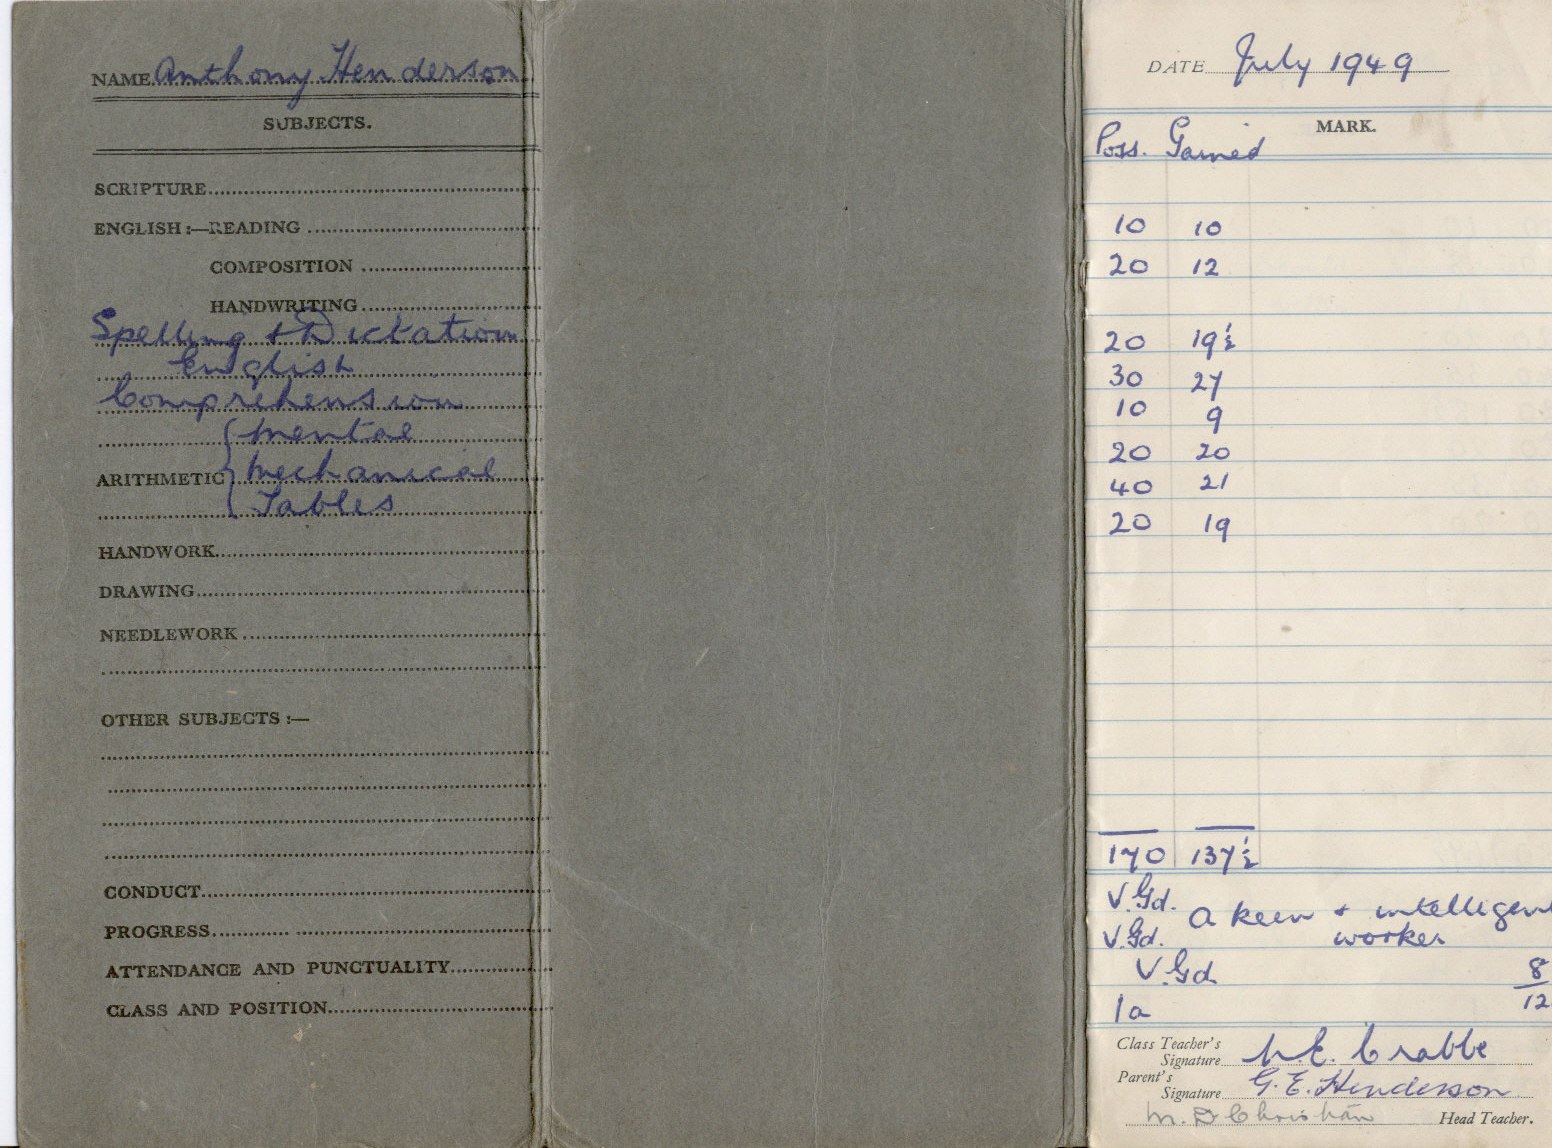 NAME Anthony Henderson
SUBJECTS.
SCRIPTURE
ENGLISH:—READING
COMPOSITION
HANDWRITING
Spelling + Dictation
English
Comprehension
Mental
ARITHMETIC Mechanical
Tables
HANDWORK
DRAWING
NEEDLEWORK
OTHER SUBJECTS:—
CONDUCT
PROGRESS
ATTENDANCE AND PUNCTUALITY
CLASS AND POSITION
DATE July 1949
MARK.
Poss. Gained
10 10
20 12
20 19½
30 27
10 9
20 20
40 21
20 19
170 137½
V. Gd. A keen + intelligent
V. Gd. worker
V. Gd. 8
1a 12
Class Teacher's
Signature E. Crabbe
Parent's
Signature G. E. Henderson
M. D Christian Head Teacher.